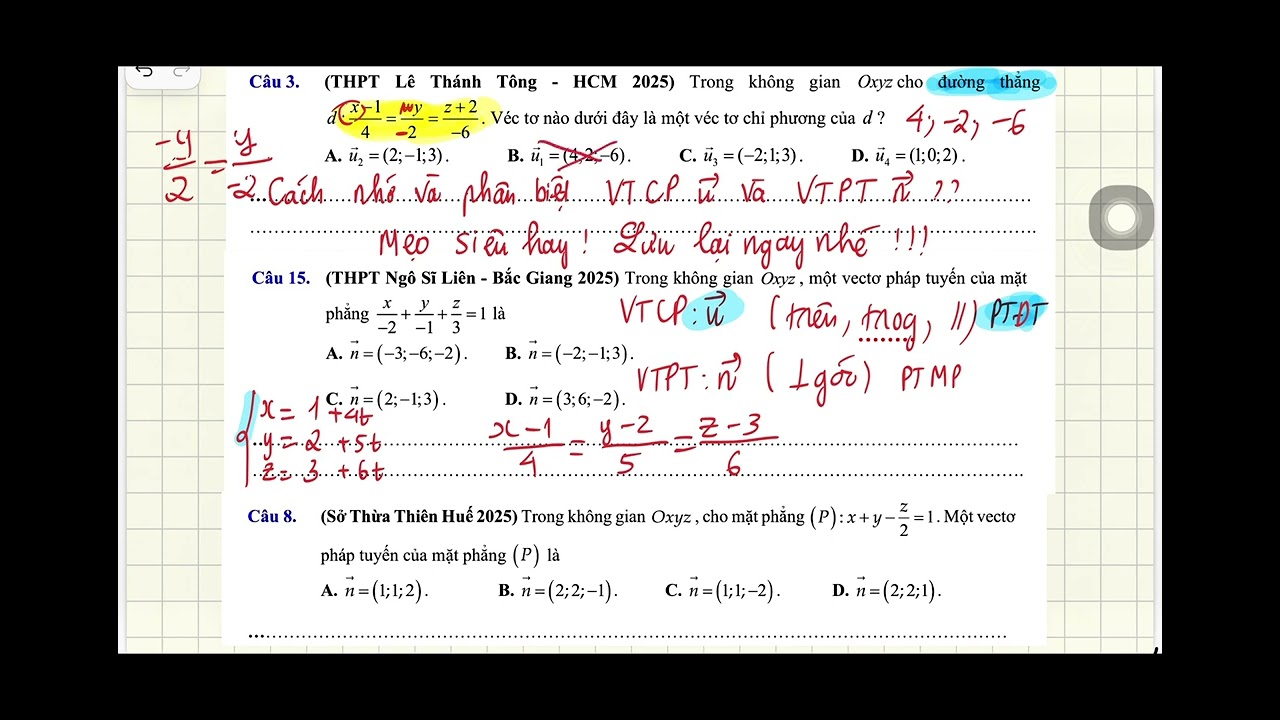 Câu 3. (THPT Lê Thánh Tông - HCM 2025) Trong không gian Oxyz cho đường thẳng
d: (x-1)/4 = -y/-2 = (z+2)/-6. Véc tơ nào dưới đây là một véc tơ chỉ phương của d ? 4; -2; -6
-y/2 = y/-2
A. u₂ = (2;-1;3). B. u₁ = (4;2;-6). C. u₃ = (-2;1;3). D. u₄ = (1;0;2).
Cách nhớ và phân biệt VTCP u và VTPT n ??
Mẹo siêu hay ! Lưu lại ngay nhé !!!
Câu 15. (THPT Ngô Sĩ Liên - Bắc Giang 2025) Trong không gian Oxyz, một vectơ pháp tuyến của mặt
phẳng x/-2 + y/-1 + z/3 = 1 là
VTCP: u (trên, trog, //) PTĐT
A. n = (-3;-6;-2). B. n = (-2;-1;3).
VTPT: n (⊥ góc) PTMP
C. n = (2;-1;3). D. n = (3;6;-2).
d
x = 1 + 4t
y = 2 + 5t
z = 3 + 6t
(x-1)/4 = (y-2)/5 = (z-3)/6
Câu 8. (Sở Thừa Thiên Huế 2025) Trong không gian Oxyz, cho mặt phẳng (P): x + y - z/2 = 1. Một vectơ
pháp tuyến của mặt phẳng (P) là
A. n = (1;1;2). B. n = (2;2;-1). C. n = (1;1;-2). D. n = (2;2;1).